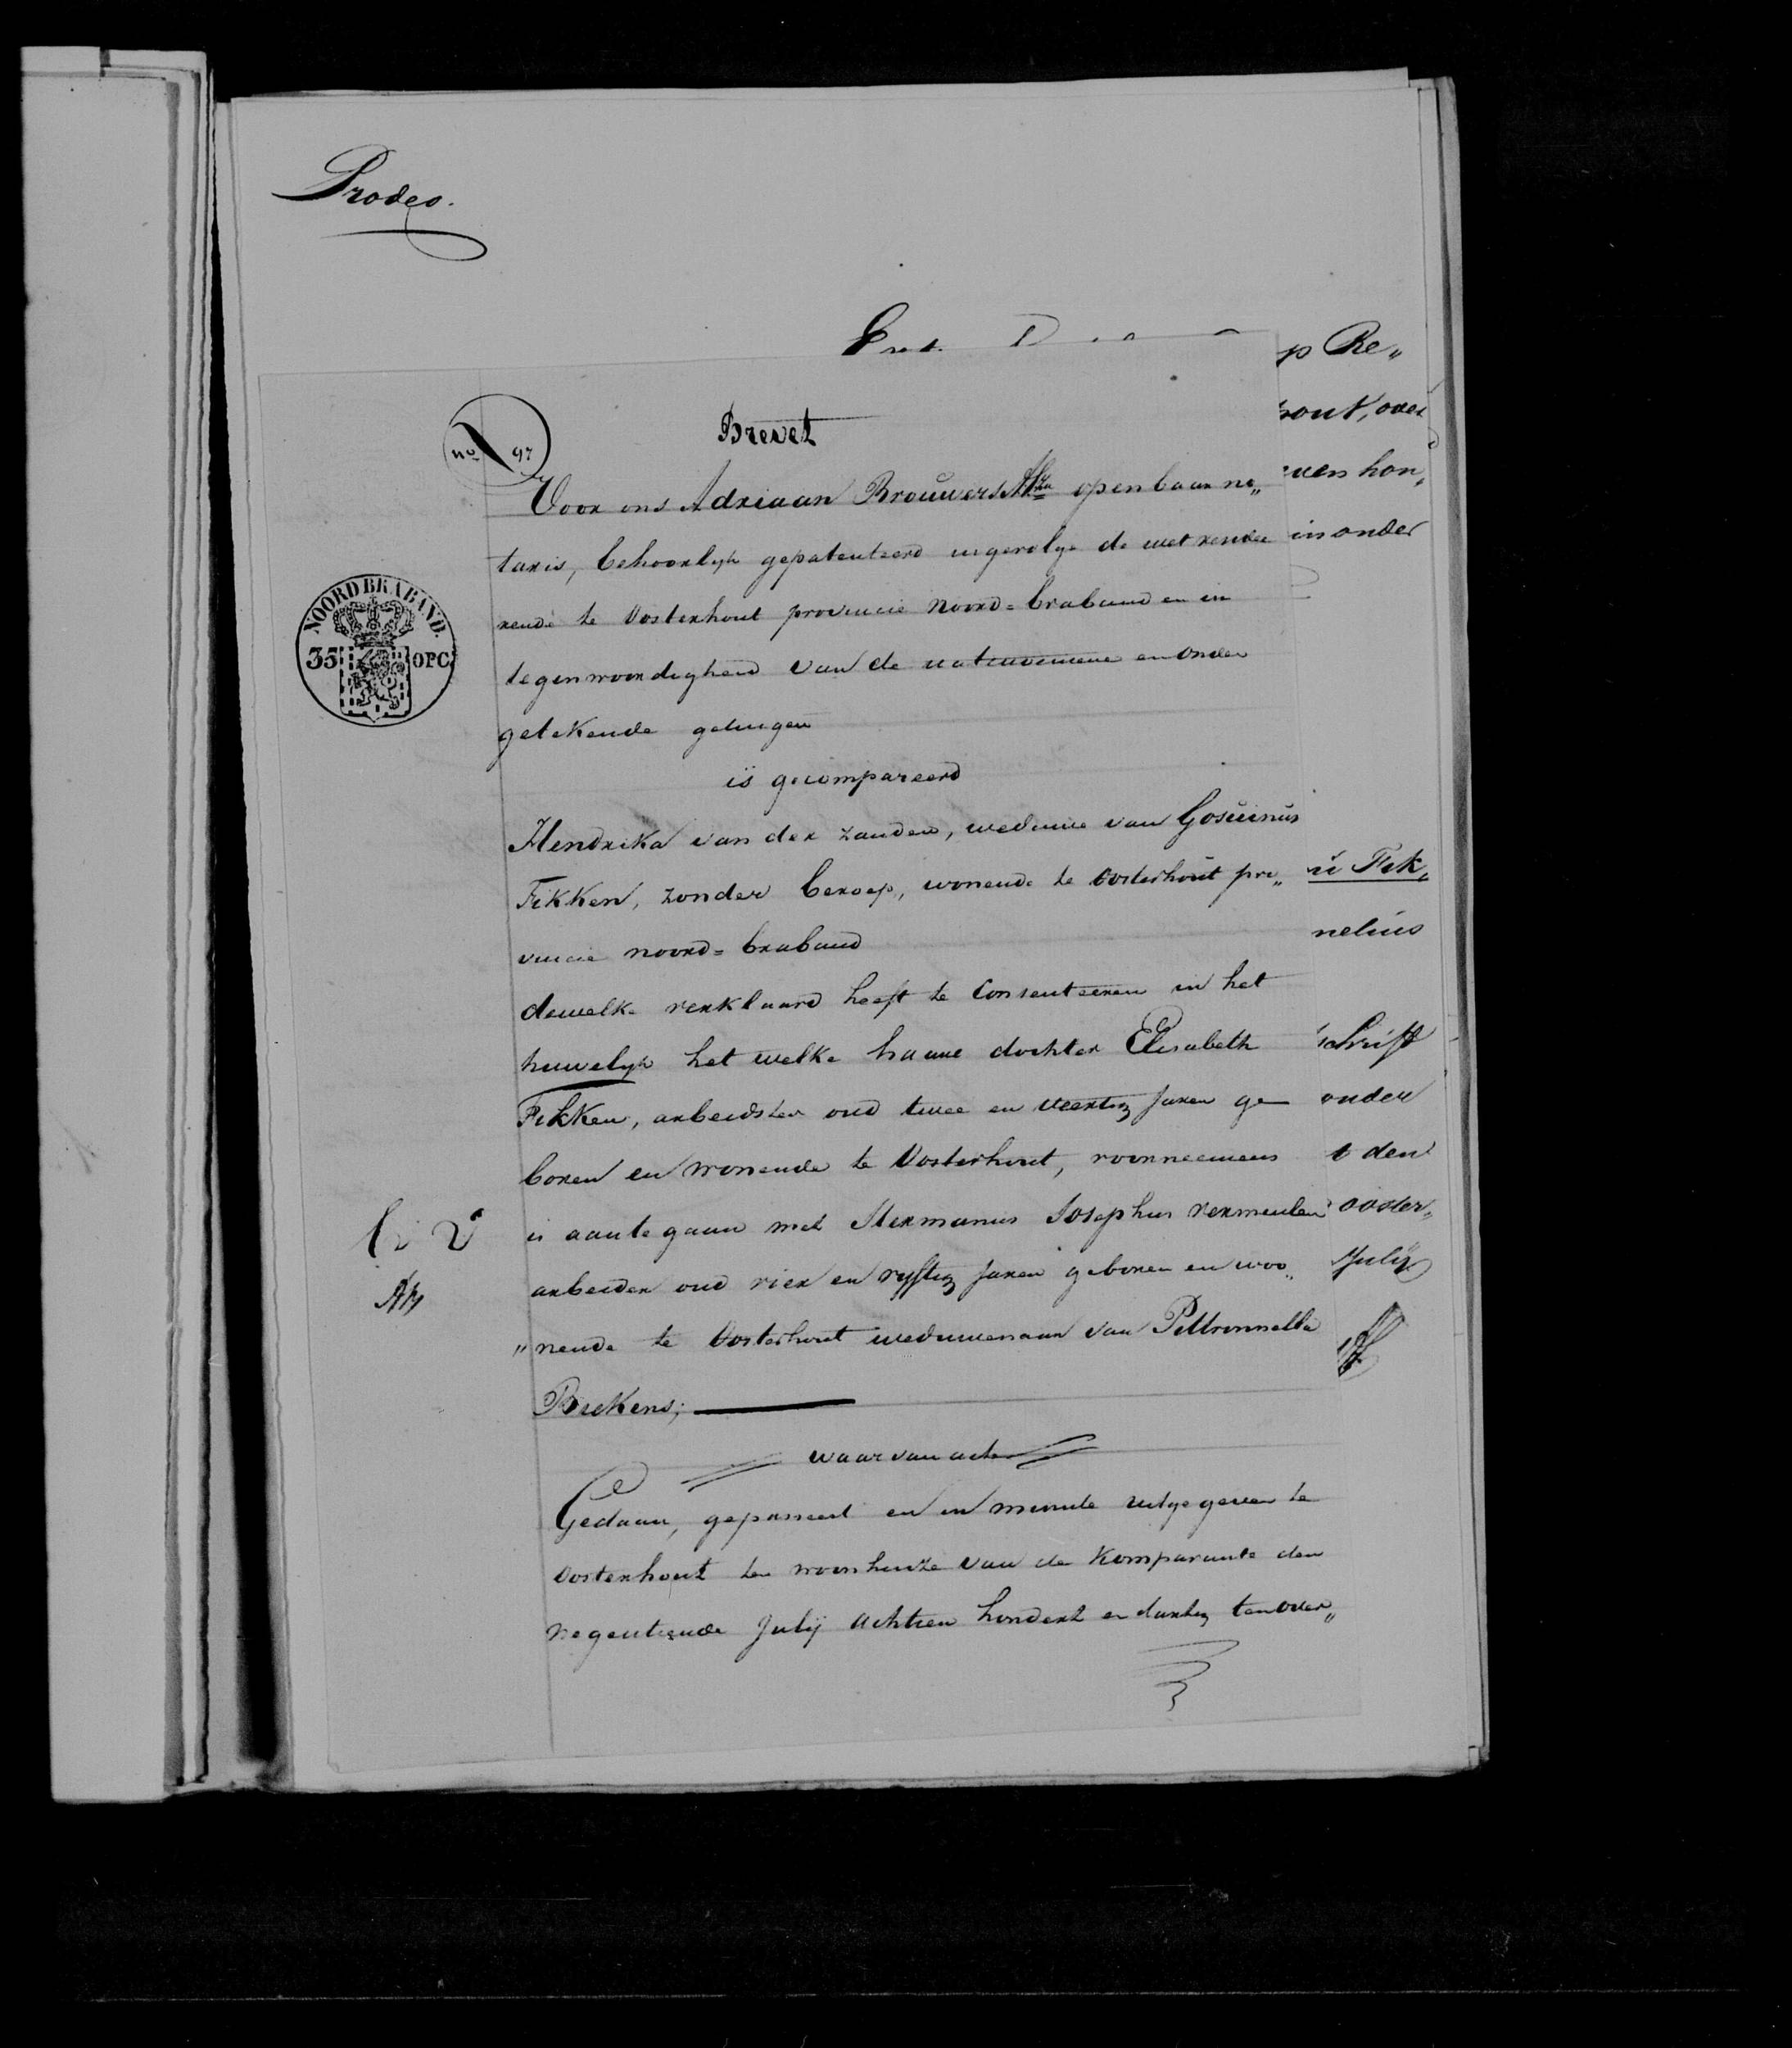 Prodeo.
p Re„
hout, over
Brevet
no 97
ven hon„
Voor ons Adriaan Brouwers openbaar no„
taris, behoorlyk gepatenteerd ingevolge de wet resider
in onder
rende te Oosterhout provincie Noord=braband en in
NOORD BRABAND.
35 OPC
tegenwoordigheid van de natenoemene en onder
getekende getuigen
is gecompareerd
Hendrika van der zanden, weduwe van Gosuinus
Fikken, zonder beroep, wonende te Oosterhout pro„
Fik„
vincie noord=braband
nelius
dewelke verklaard heeft te Consenteeren in het
huwelyk het welke haare dochter Elisabeth
schrift
Fikken, arbeidster oud twee en veertig Jaren ge
onder
boren en wonende te Oosterhout, voorneemens
t den
is aantegaan met Hermanus Josephus vermeulen
ooster„
arbeider oud vier en vyftig Jaren geboren en woo„
July
„nende te Oosterhout weduwenaar van Pettronnella
Biekens;
waar van acte
Gedaan, gepasseerd en in minute uitgegeven te
Oosterhout ten woonhuize van de Komparante den
negentiende Julij achtien hondert en dartig ten over„